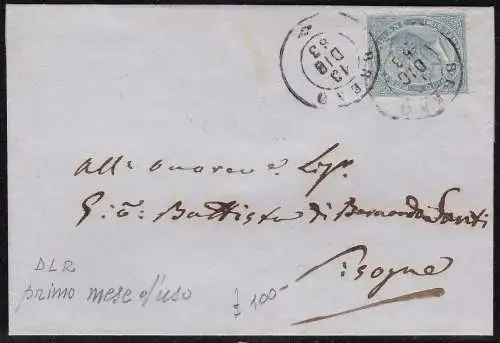 BRENO
13
DIC
63
All' Onorev.e Sig.r
Gio: Battista di Bernardo
Pisogne
DLR
primo mese d'uso
£ 100-